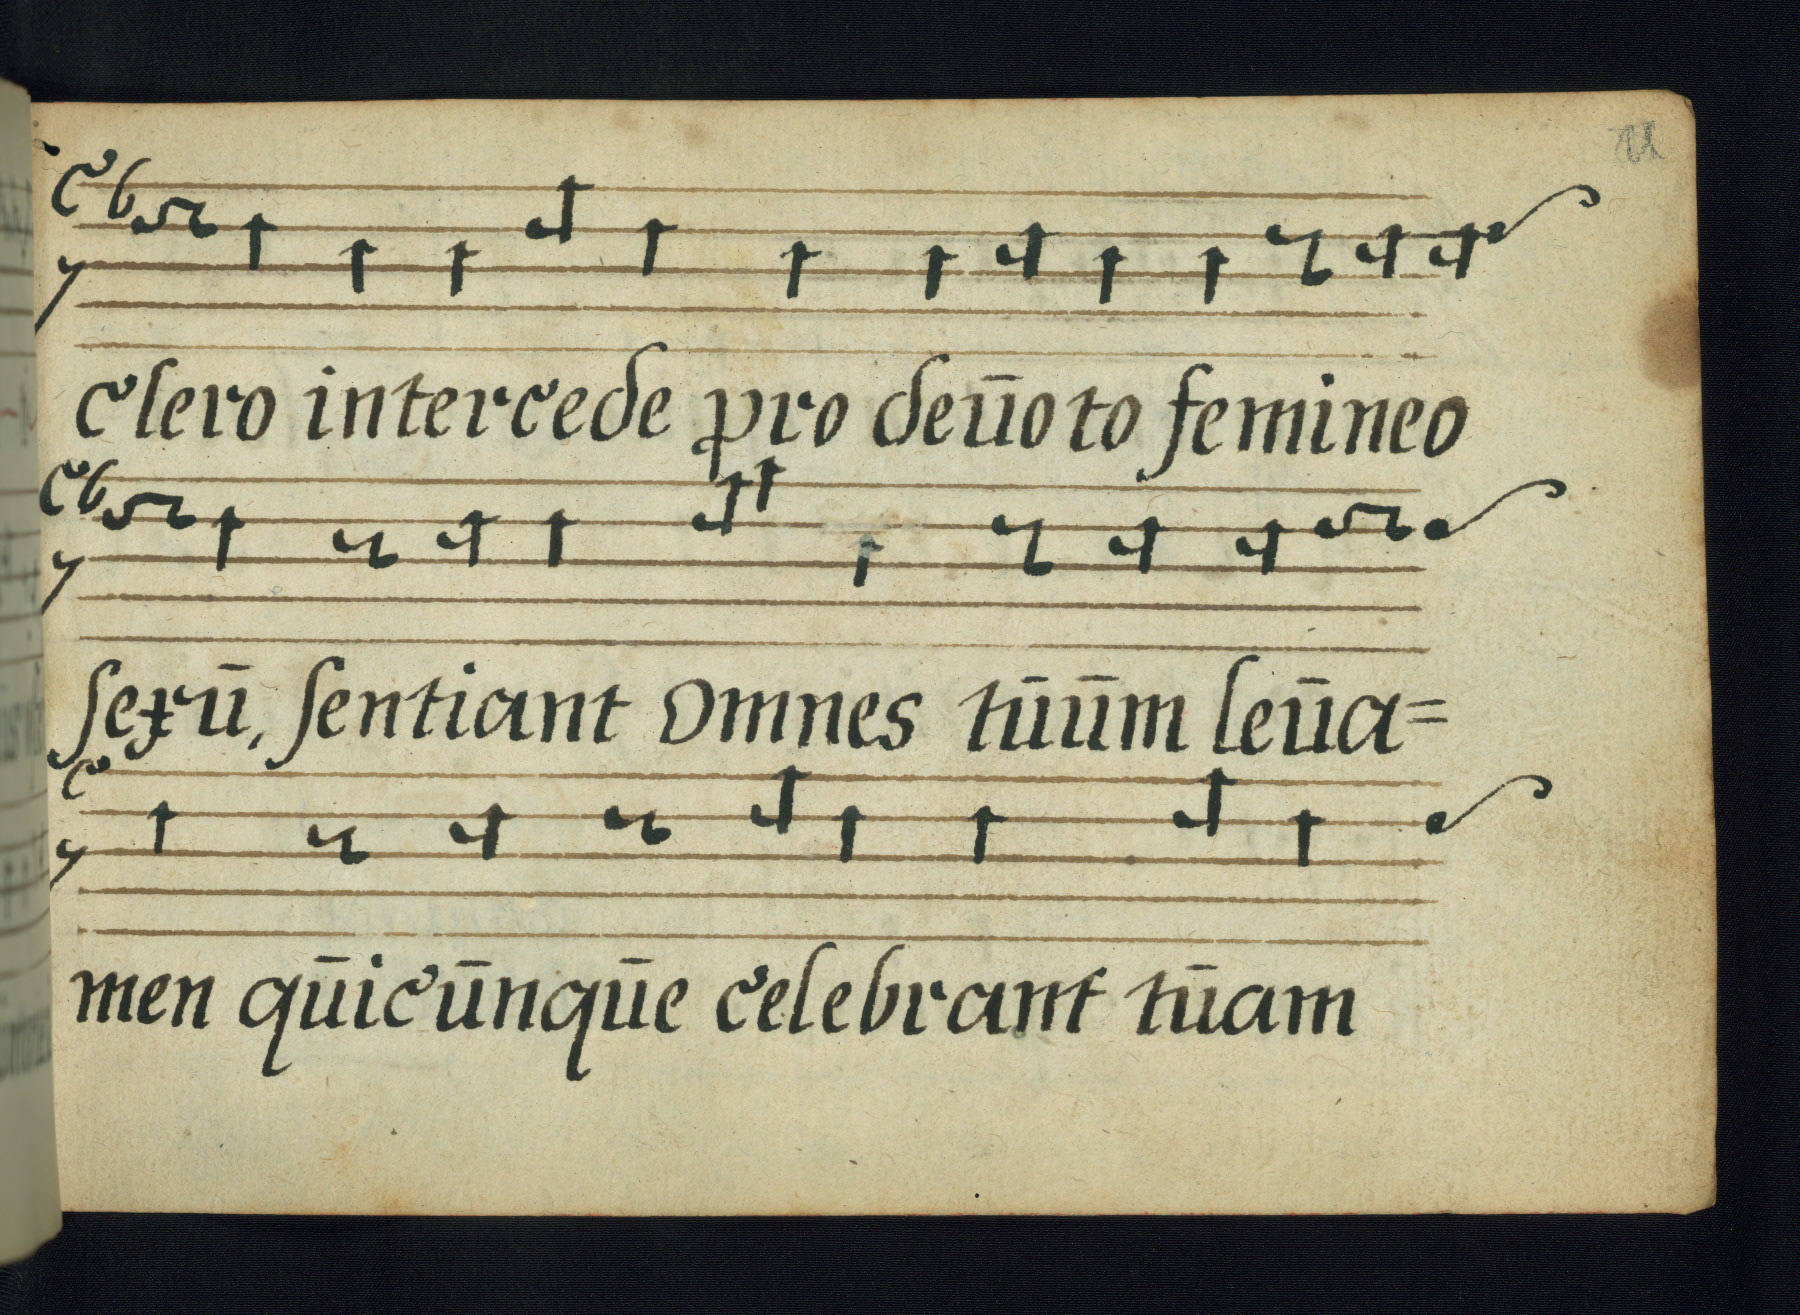 clero intercede pro deūoto femineo
sexū, sentiant omnes tūūm leūa=
men qūicūnqūe celebrant tūam